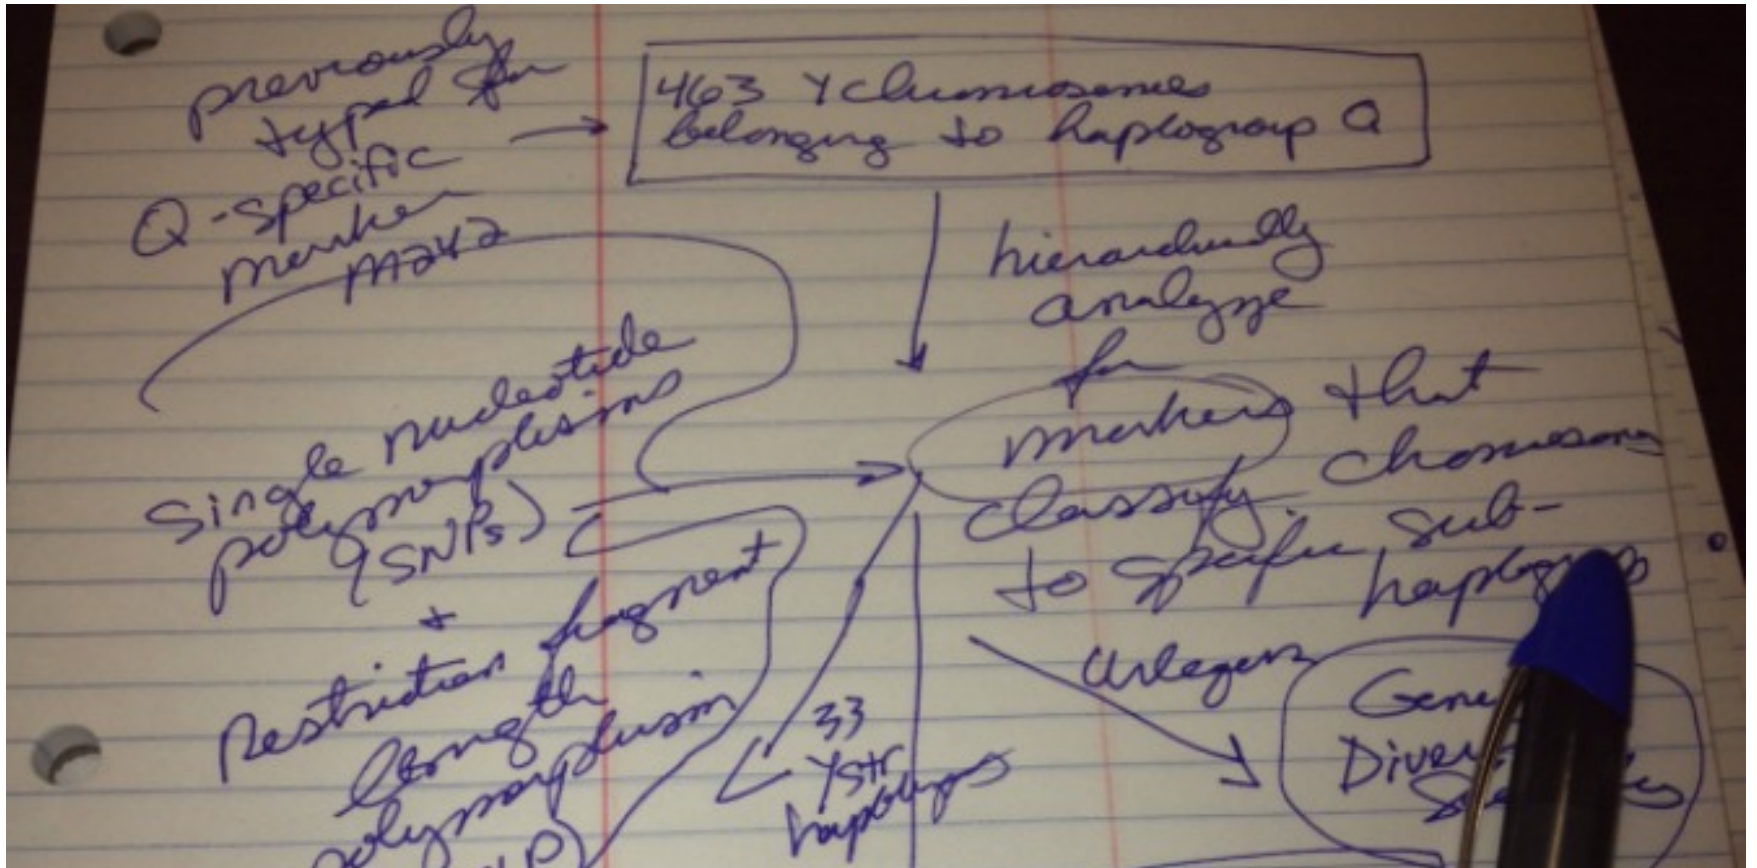 previously
typed for
Q-specific
marker
M242
463 Y chromosomes
belonging to haplogroup Q
hierarchically
analyze
for
markers that
classify chomosomes
to specific sub-
haplogroups
Single nucleotide
polymorphisms
(SNPs)
+
Restriction fragment
length
polymorphism
33
Ystr
haplotypes
Arlequin